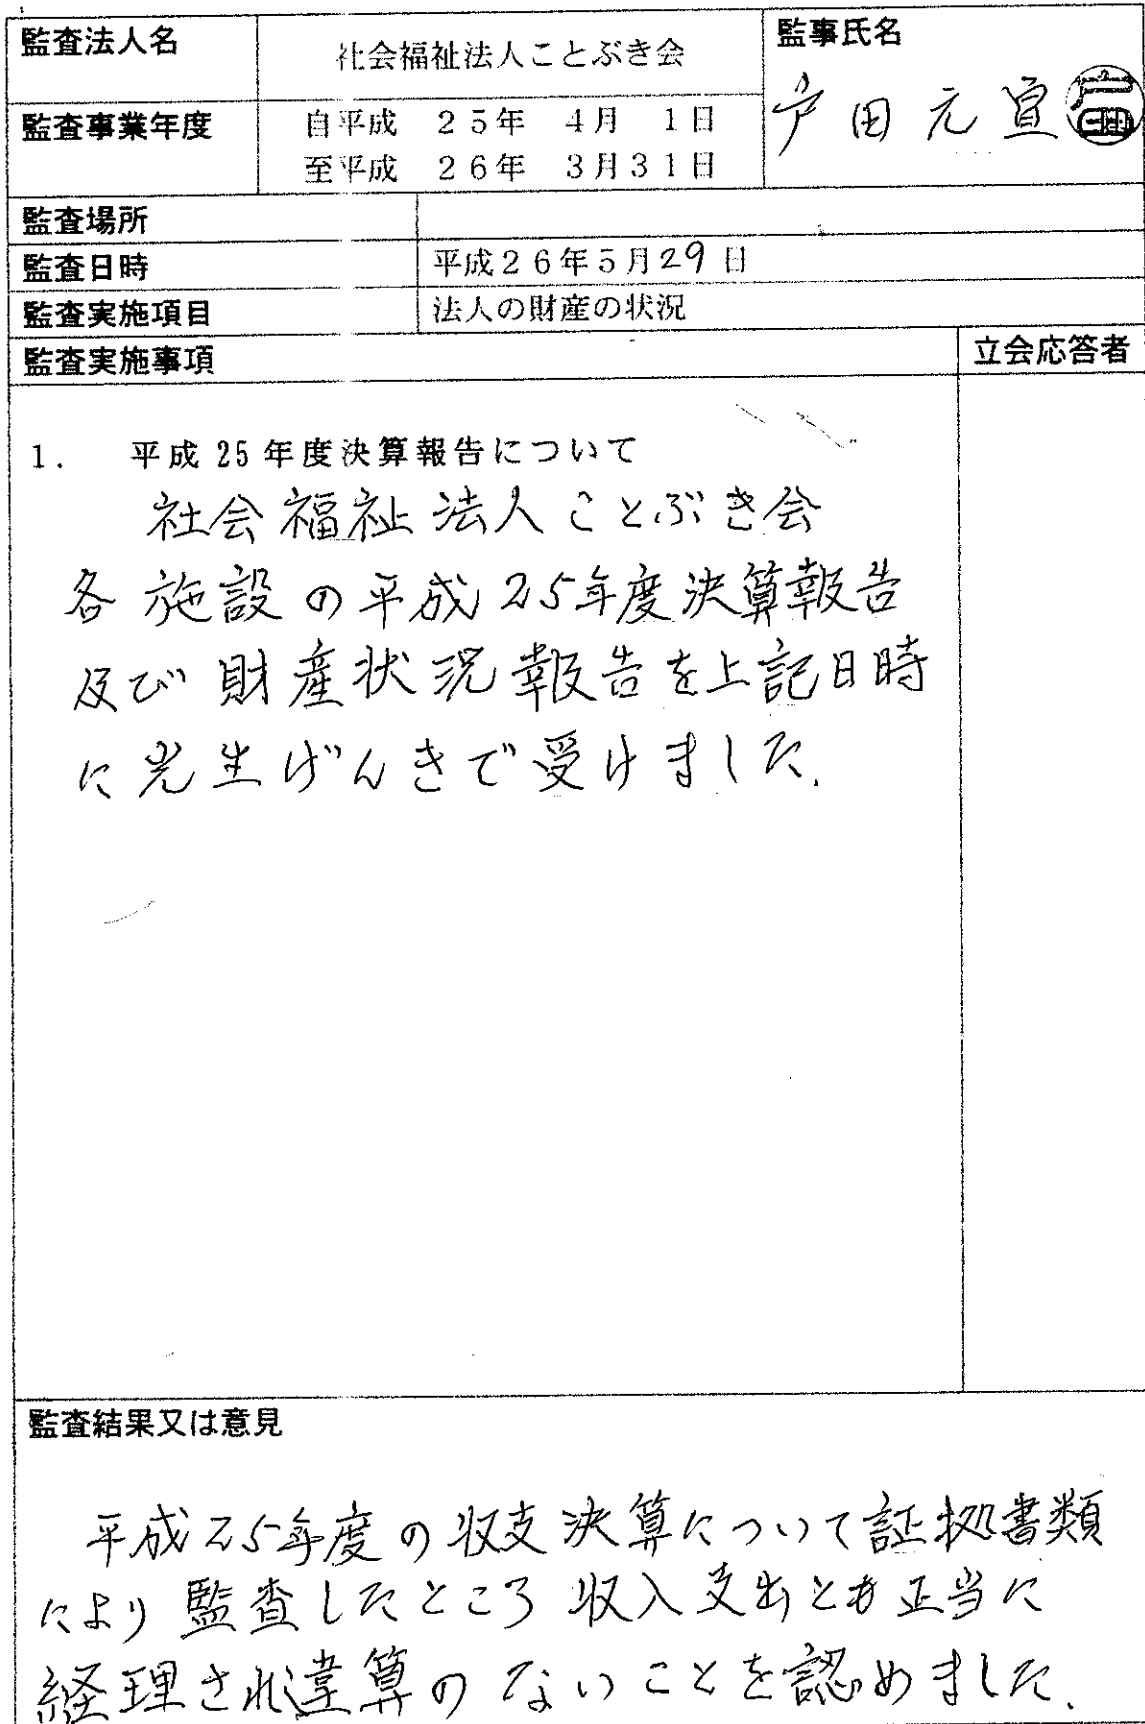 監査法人名 社会福祉法人ことぶき会 監事氏名
戸田元宣
監査事業年度 自平成 25年 4月 1日
至平成 26年 3月31日
監査場所
監査日時 平成26年5月29日
監査実施項目 法人の財産の状況
監査実施事項 立会応答者
1. 平成25年度決算報告について
社会福祉法人ことぶき会
各施設の平成25年度決算報告
及び財産状況報告を上記日時
に光生げんきで受けました.
監査結果又は意見
平成25年度の収支決算について証拠書類
により監査したところ収入支出とも正当に
経理され違算のないことを認めました.